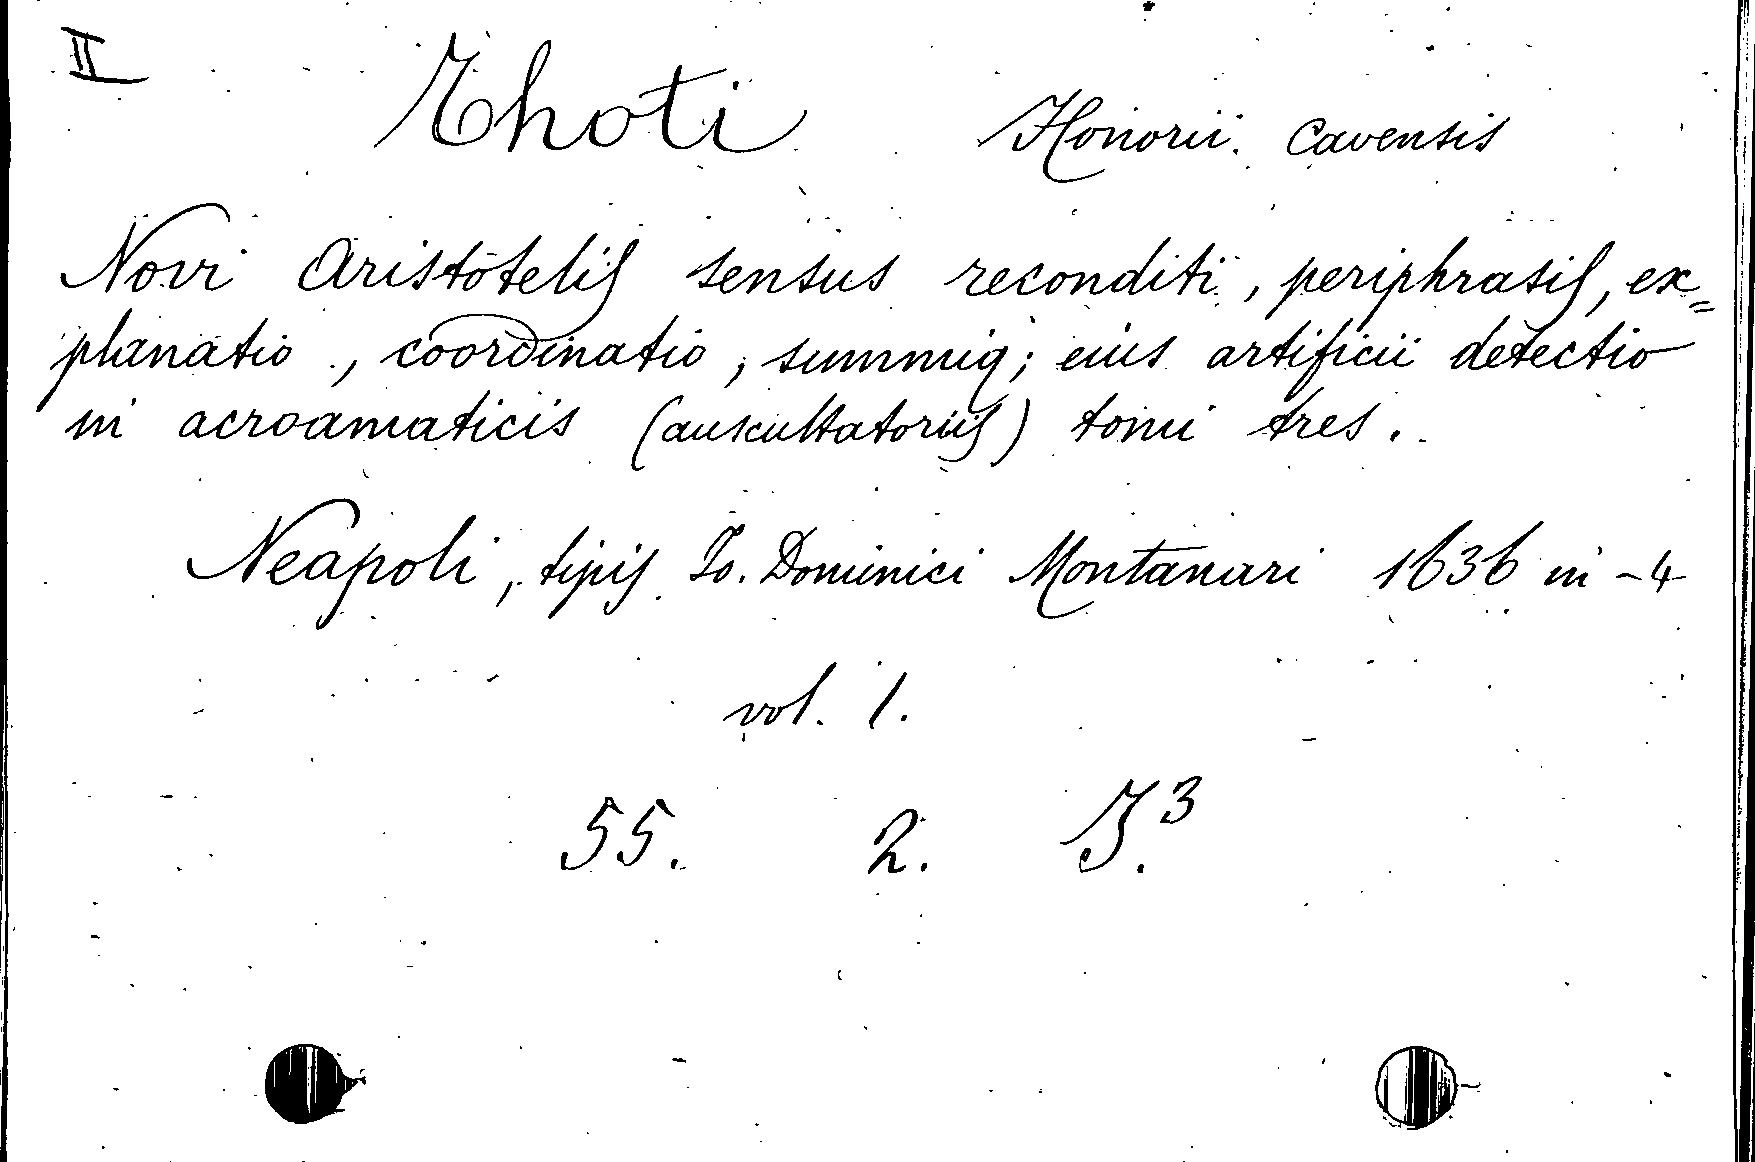 II
Thoti Honorii. Cavensis
Novi Aristotelis sensus reconditi, periphrasis, ex=
planatio, coordinatio, summiq; eius artificii detectio
in acroamaticis (auscultatoriis) tomi tres.
Neapoli, tipis Io. Dominici Montanari 1636 in -4
vol. 1.
55. 2. I.3